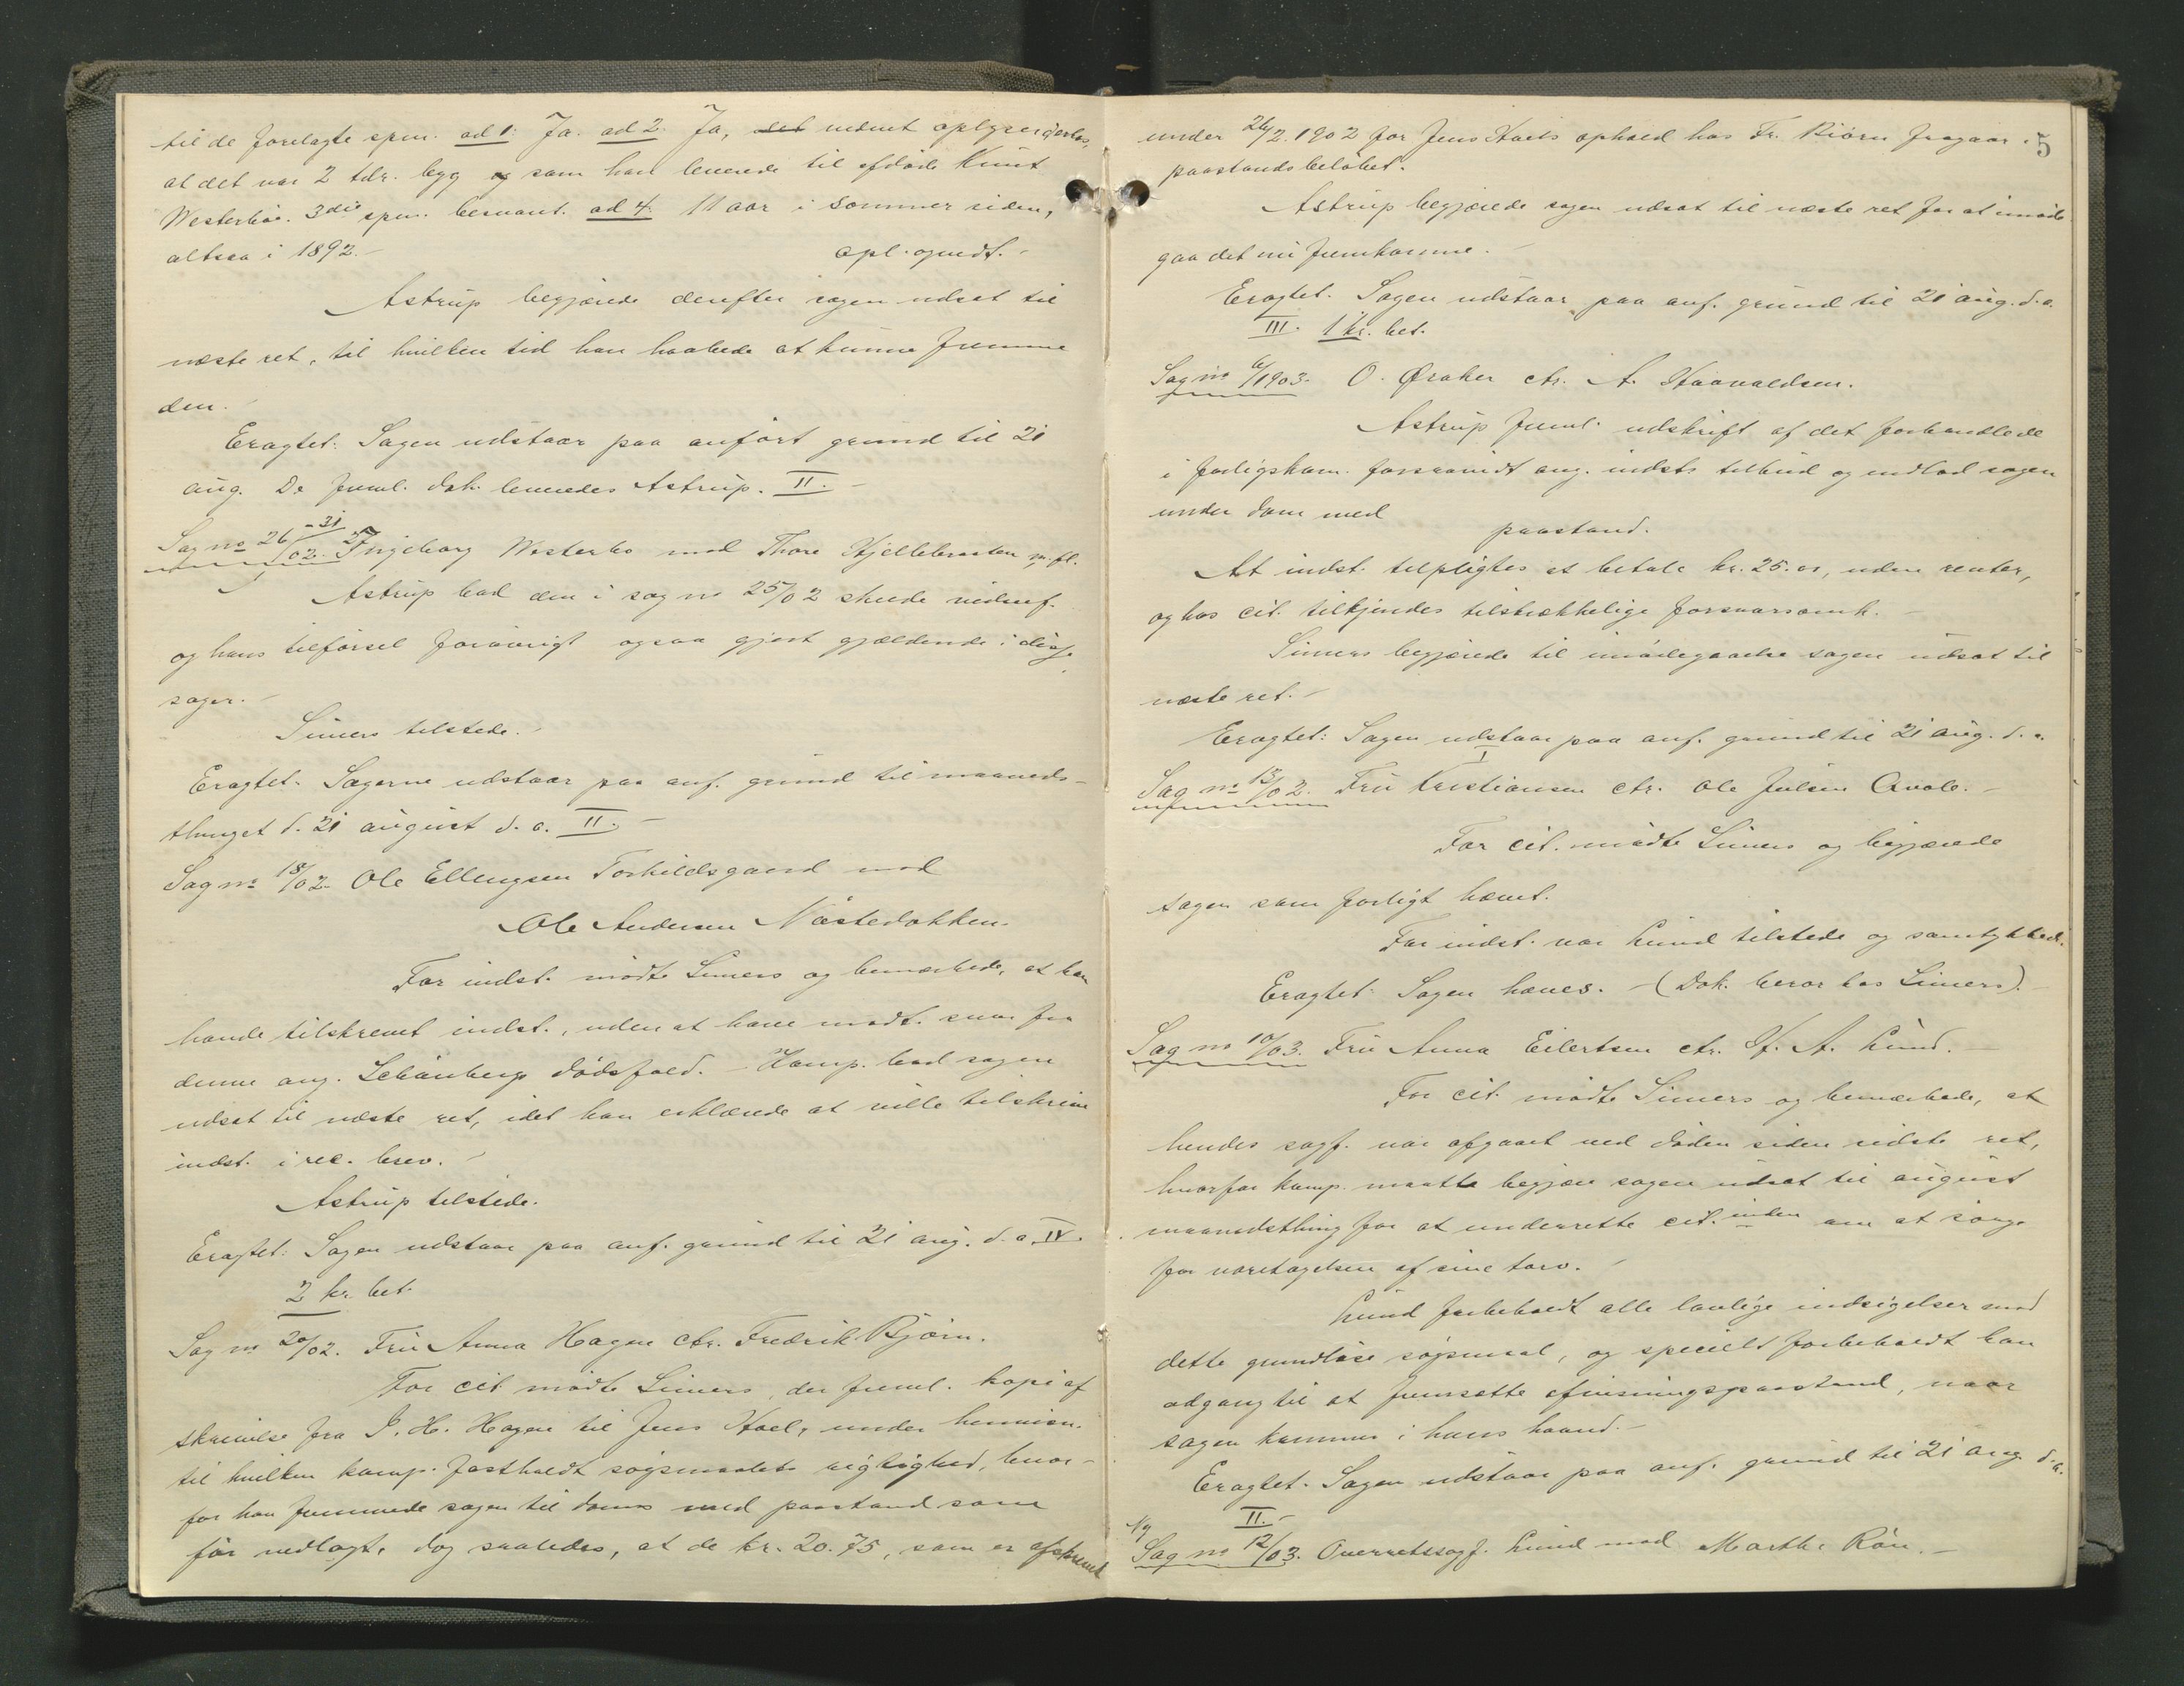 til de forelagte spm. ad 1. Ja. ad 2. Ja, det vidnet oplyser derhos,
at det var 2 tdr. byg og som han leverede til afdøde Knut
Westerbøe. 3die spm. besvart. ad 4. 11 aar i sommer siden,
altsaa i 1892.- opl. vedt.-
Astrup begjærede derefter sagen udsat til
næste ret, til hvilken tid han haabede at kunne fremme
den.
Eragtet: Sagen udstaar paa anført grund til 21
aug. De freml. dok. leveredes Astrup. II.-
Sag no 26-31/02. Ingeborg Westerbø mod Thore Kjellebraaten m.fl.
Astrup bad den i sag no 25/02 skede vidnef.
og hans tilførsel forøvrigt ogsaa gjort gjældende i disse
sager.-
Simers tilstede.
Eragtet: Sagerne udstaar paa anf. grund til maaneds-
thinget d. 21 august d.a. II.-
Sag no 18/02. Ole Ellingsen Torkildsgaard mod
Ole Andersen Næstedokken.
For indst. mødte Simers og bemærkede, at han
havde tilskrevet indst., uden at have modt. svar fra
denne ang. Schönbergs dødsfald. - Komp. bad sagen
udsat til næste ret, idet han erklærede at ville tilskrive
indst. i rec. brev.
Astrup tilstede.
Eragtet: Sagen udstaar paa anf. grund til 21 aug. d.a. IV.
2 kr. bet.
Sag no 20/02. Fru Anna Hagen ctr. Fredrik Bjørn.
For cit. mødte Simers, der freml. kopi af
skrivelse fra J. H. Hagen til Jens Hoel, under henvisn.
til hvilken komp. fastholdt søgsmaalets rigtighed, hvor-
for han fremmede sagen til doms med paastand som
før nedlagt, dog saaledes, at de kr. 20.75, som er afskrevet
5
under 26/2. 1902 for Jens Hoels ophold hos Fr. Bjørn fragaar i
paastandsbeløbet.
Astrup begjærede sagen udsat til næste ret for at imøde
gaa det nu fremkomne.-
Eragtet. Sagen udstaar paa anf. grund til 21 aug. d.a.
III. 1 kr. bet.
Sag no 6/1903. O. Øraker ctr. A. Haavaldsen.
Astrup freml. udskrift af det forhandlede
i forligskom. forsaavidt ang. indsts tilbud og indlod sagen
under dom med
paastand.
At indst. tilpligtes at betale kr. 25.00, uden renter,
og hos cit. tilkjendes tilstrækkelige forsvarsomk.-
Simers begjærede til imødegaaelse sagen udsat til
næste ret.-
Eragtet: Sagen udstaar paa anf. grund til 21 aug. d.a.
I
Sag no 13/02. Fru Kristiansen ctr. Ole Julsen Qvale.-
For cit. mødte Simers og begjærede
sagen som forligt hævet.
For indst. var Lund tilstede og samtykkede.
Eragtet: Sagen hæves. - (Dok. beror hos Simers).-
Sag no 10/03. Fru Anna Eilertsen ctr. H. A. Lund.
For cit. mødte Simers og bemærkede, at
hendes sagf. var afgaaet ved døden siden sidste ret,
hvorfor komp. maatte begjære sagen udsat til august
maanedsthing for at underrette cit.inden om at sørge
for varetagelsen af sine tarv.
Lund forbeholdt alle lovlige indsigelser mod
dette grundløse søgsmaal, og specielt forbeholdt han
adgang til at fremsætte afvisningspaastand, naar
sagen kommer i hans haand.-
Eragtet. Sagen udstaar paa anf. grund til 21 aug. d.a.
II.-
Ny
Sag no 12/03. Overretssagf. Lund mod Marthe Røn.-